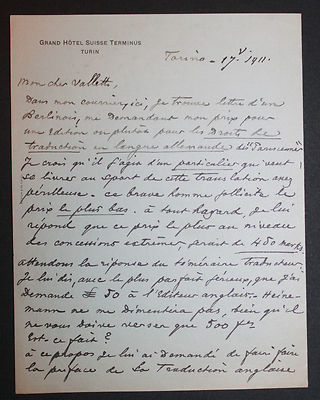 GRAND HÔTEL SUISSE TERMINUS
TURIN
Torino - 17 V 1911.
Mon cher Vallette,
Dans mon courrier, ici, je trouve lettre d'un
Berlinois, me demandant mon prix pour
un Edition ou plutôt pour les Droits de
traduction en langue allemande de
Je crois qu'il s'agit d'un particulier qui veut
se livrer au sport de cette translation assez
périlleuse. Ce brave homme sollicite le
prix le plus bas. à tout hazard, je lui
répond que ce prix le plus au niveau
des concessions extrêmes, serait de 450 marks
attendons la réponse du téméraire traducteur.
Je lui dis, avec le plus parfait sérieux, que j'ai
Demandé £ 50 à l'Editeur anglais. Heine-
mann ne me Démentira pas, bien qu'il
ne vous Doive verser que 500 frs
Est-ce fait?
à ce propos je lui ai Demandé de faire faire
la préface de La Traduction anglaise